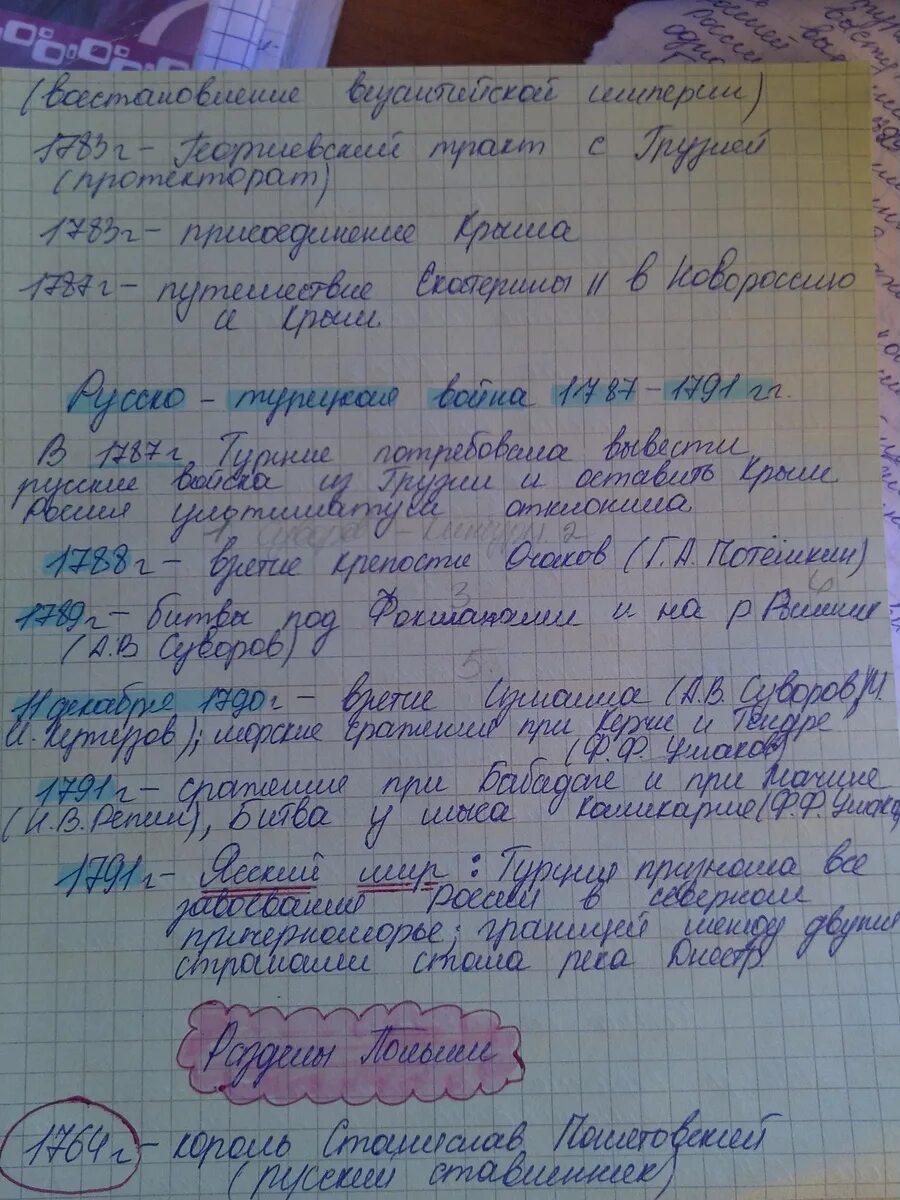 (восстановление византийской империи)
1783г – Георгиевский тракт с Грузией
(протекторат)
1783г – присоединение Крыма
1787г – путешествие Екатерины II в Новороссию
и Крым.
Русско – турецкая война 1787 – 1791 гг.
В 1787г. Турция потребовала вывести
русские войска из Грузии и оставить Крым.
Россия ультиматум отклонила
1788г – взятие крепости Очаков (Г.А. Потёмкин)
1789г – битвы под Фокшанами и на р Рымник
(А.В Суворов)
11 декабря 1790г – взятие Измаила (А.В. Суворов, М.
И. Кутузов); морские сражения при Керчи и Тендре
(Ф.Ф. Ушаков)
1791г – сражение при Бабадаге и при Мачине
(Н.В. Репин), Битва у мыса Калиакрия (Ф.Ф. Ушако
1791г – Ясский мир: Турция признала все
завоевания России в северном
причерноморье; границей между двумя
странами стала река Днестр.
Разделы Польши
1764г – король Станислав Понятовский
(русский ставленник)